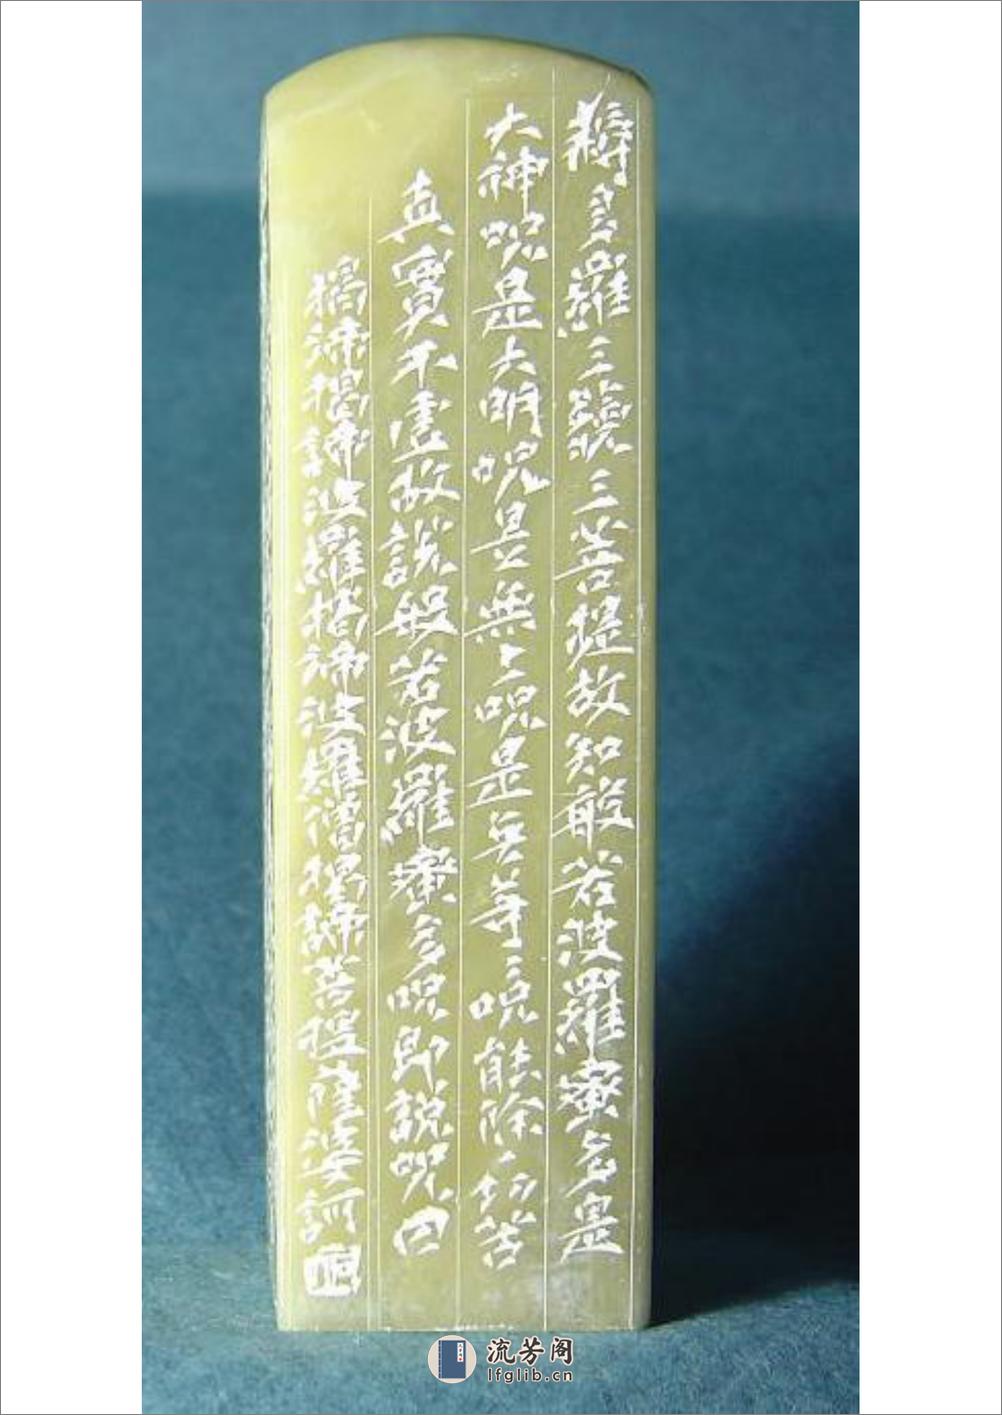 耨多羅三藐三菩提故知般若波羅蜜多是
大神呪是大明呪是無上呪是無等等呪能除一切苦
真實不虛故說般若波羅蜜多呪即說呪曰
揭諦揭諦波羅揭諦波羅僧揭諦菩提薩婆訶
流芳阁
lfglib.cn